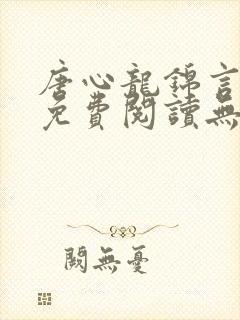 唐心龍錦言
免費閱讀無
闕無憂